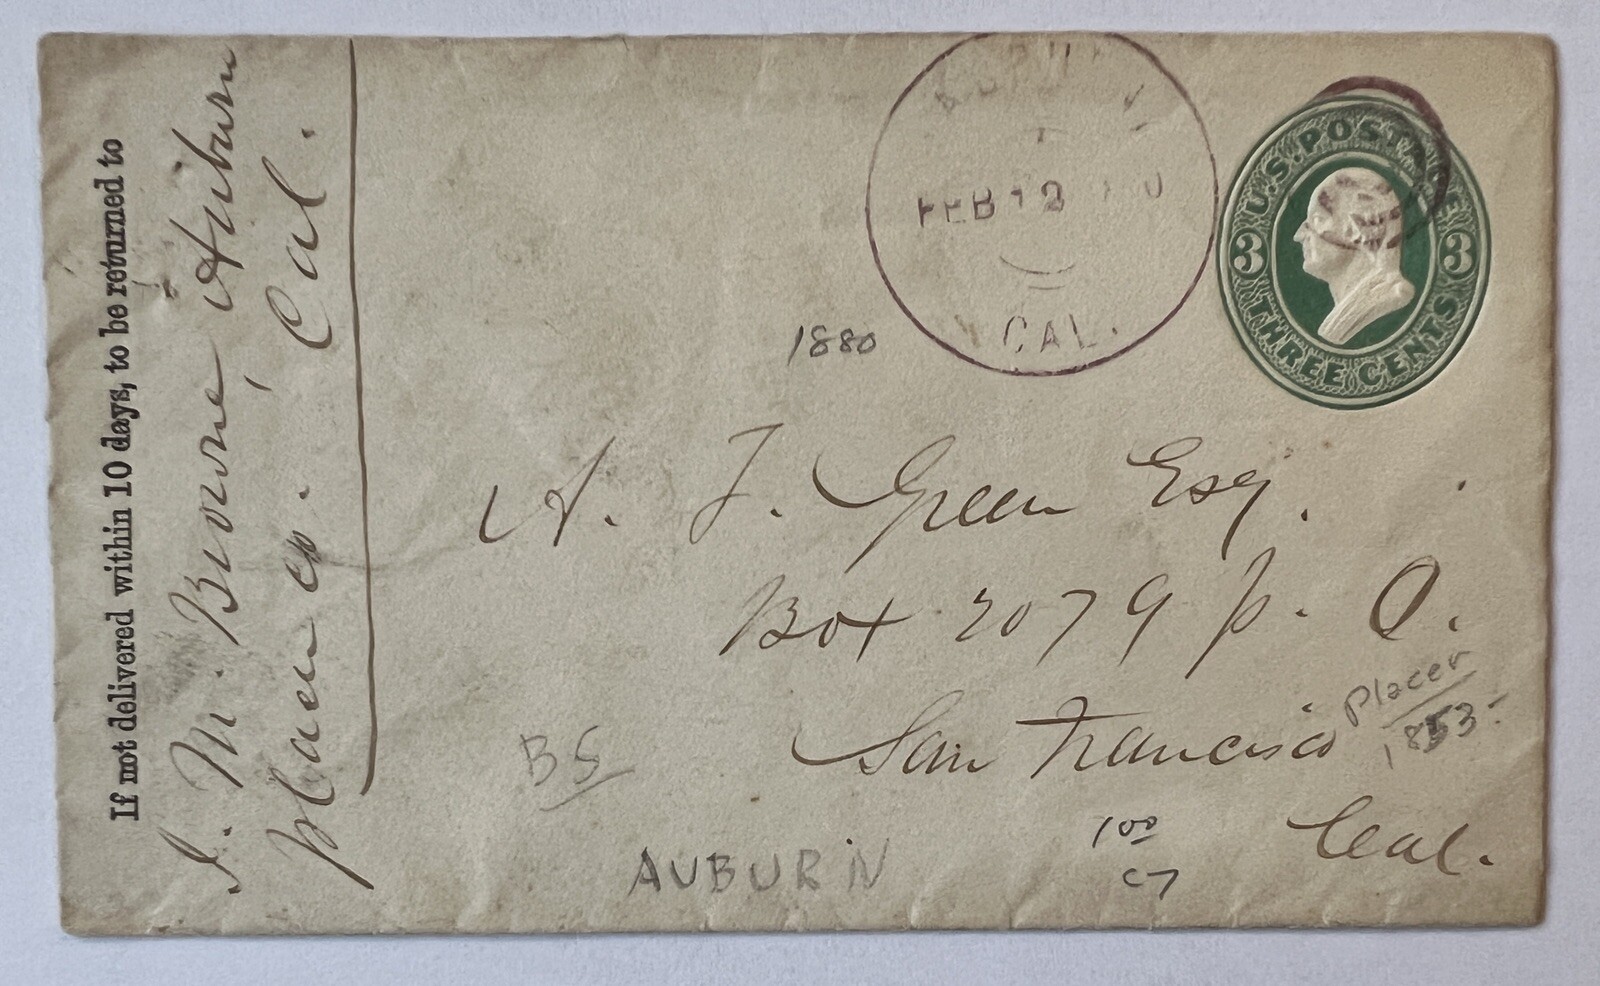 If not delivered within 10 days, to be returned to
J. M. Browne, Auburn
Placer Co. Cal.
AUBURN
FEB 12
CAL.
U.S. POSTAGE
3 3
THREE CENTS
1880
A. J. Green Esq.
Box 2079 P. O.
San Francisco
Cal.
Placer
1853
BS
AUBURN
1 00
C7